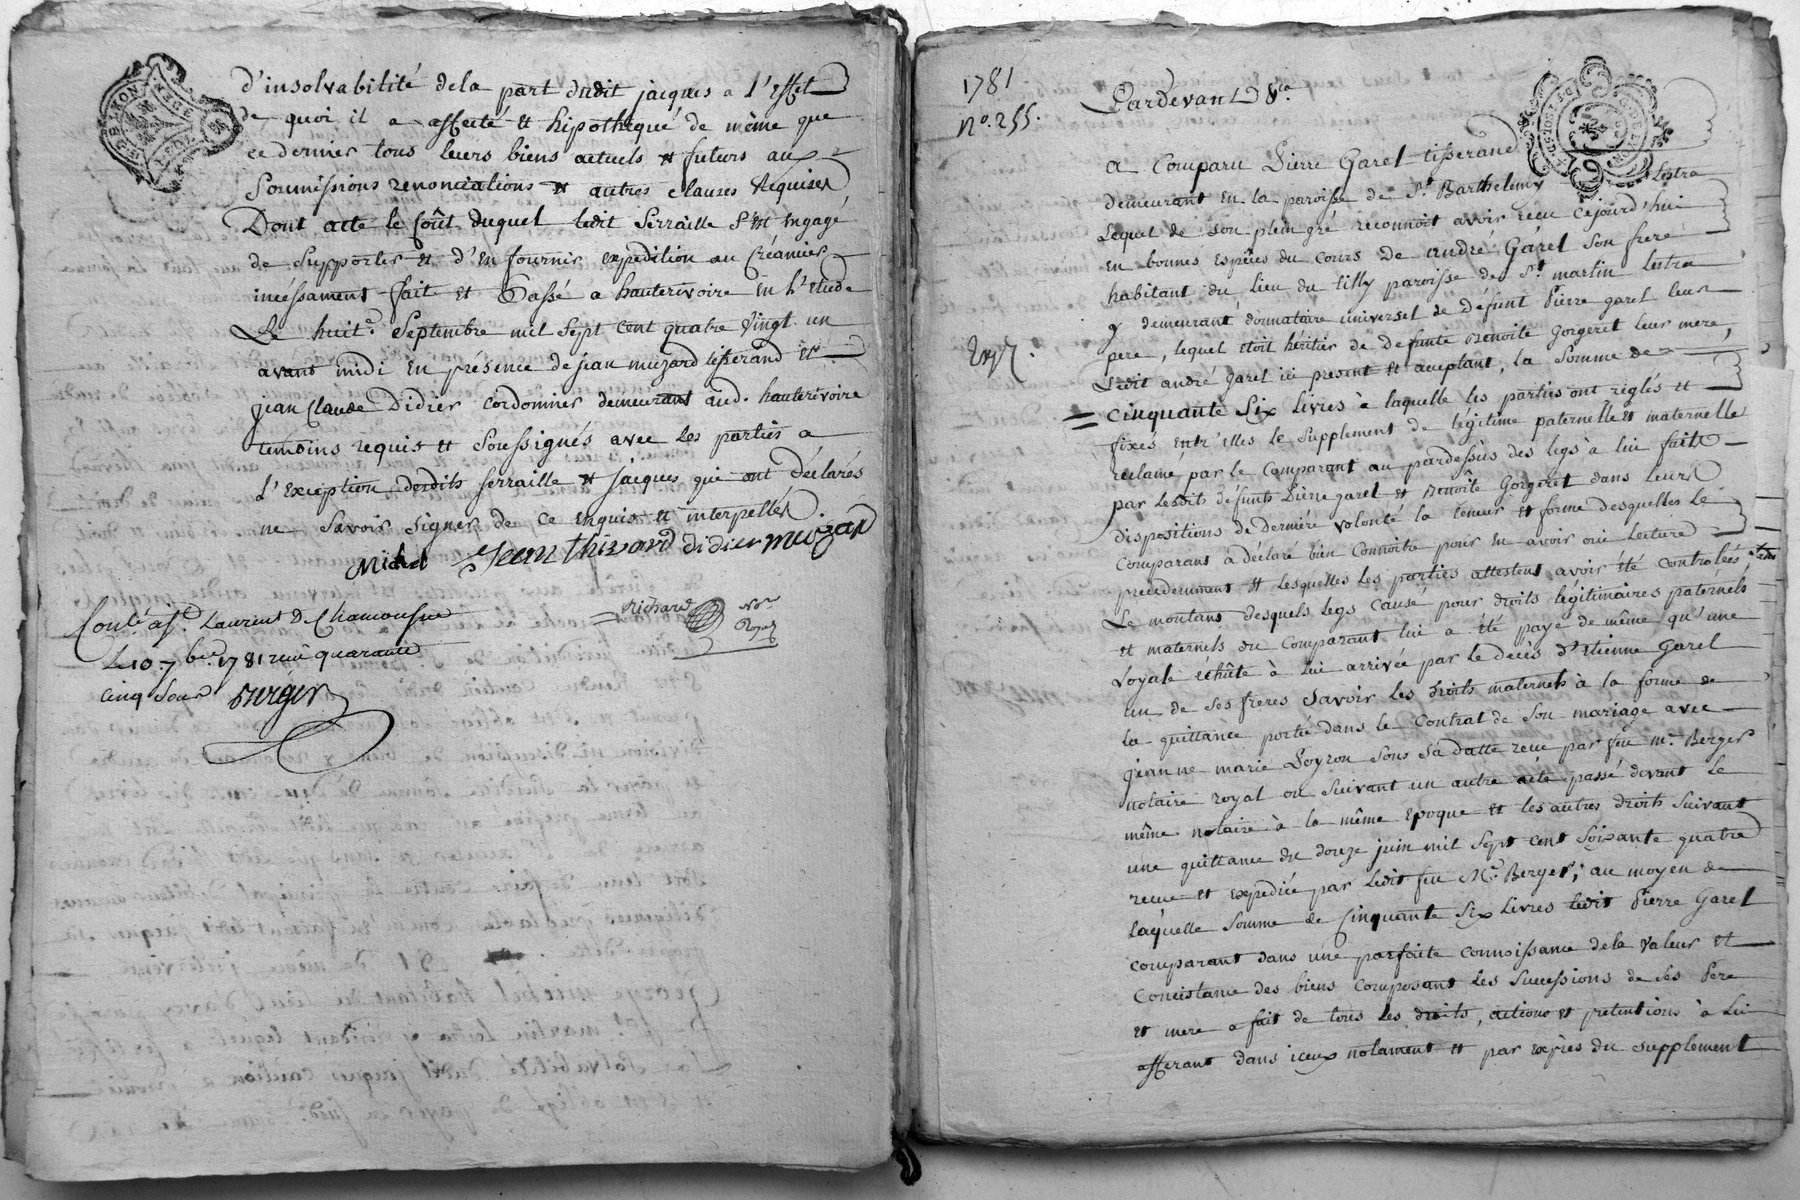 d'insolvabilité dela part dudit jacques a l'effet
de quoi il a affecté et hipothequé de même que
ce dernier tous leurs biens actuels et futurs aux
soumissions renonciations et autres clauses Requises
Dont acte le Coût duquel ledit Serraille s'est engagé
de supporter et d'en fournir expedition au Créancier
incéssament fait et Passé a hauterivoire En l'etude
Le huit.e Septembre mil Sept Cent quatre Vingt un
avant midi En présence de jean muzard tisserand et
jean Claude Didier Cordonnier demeurant aud. hauterivoire
temoins requis et Soussignés avec les parties a
l'Exception desdits Serraille et Jacques qui ont déclarés
ne Savoir Signer de ce enquis et interpellés.
Michel Jean thivard didier muzard
Richard No.re Royal
Con.lé à S.t Laurent D Chamousset
Le 10 7bre 1781 recu quarante
cinq Sous Berger
1781
N.o 255.
Pardevant
a Comparu Pierre Garel tisserand
demeurant en la paroisse de S.t Barthelemy Lestra
Lequel de son plein gré reconnoit avoir recu cejourd'hui
en bonnes Espéces du cours de andré Garel Son frere
habitant du Lieu du tilly paroisse de S.t martin Lestra
y demeurant donnataire universel de défunt Pierre garel leur
pere, lequel etoit héritier de defunte Benoite Gorgeret leur mere,
Ledit andré garel ici present et acceptant, la Somme de
Cinquante Six Livres à laquelle les parties ont réglés et
fixés entr'elles le Supplement de légitime paternelle et maternelle
réclamé par le Comparant au pardessus des legs à lui faits
par lesdits defunts Pierre garel et Benoite Gorgeret dans leurs
dispositions de derniére volonté la teneur et forme desquelles Le
Comparant a déclaré bien Connoitre pour en avoir oui lecture
precedemment et lesquelles les parties attestent avoir été controleés,
Le montant desquels legs Causé pour droits légitimaires paternels
et maternels du Comparant lui a été payé de même qu'une
Loyale échûte à lui arrivée par le deces d'Etienne Garel
un de ses freres Savoir les droits maternels à la forme de
la quittance portée dans le Contrat de Son mariage avec
jeanne marie Poyron Sous Sa datte recu par feu m.e Berger
notaire royal ou Suivant un autre acte passé devant le
même notaire à la même Epoque et les autres droits Suivant
une quittance du douze juin mil Sept cent Soixante quatre
recue et expediée par ledit feu M.e Berger, au moyen de
Laquelle Somme de Cinquante Six Livres ledit Pierre Garel
Comparant dans une parfaite Connoissance dela Valeur et
Concistance des biens Composant les Successions de ses Pere
et mere a fait de tous les droits, actions et prétentions à Lui
afferant dans iceux notament et par exprès du Supplement